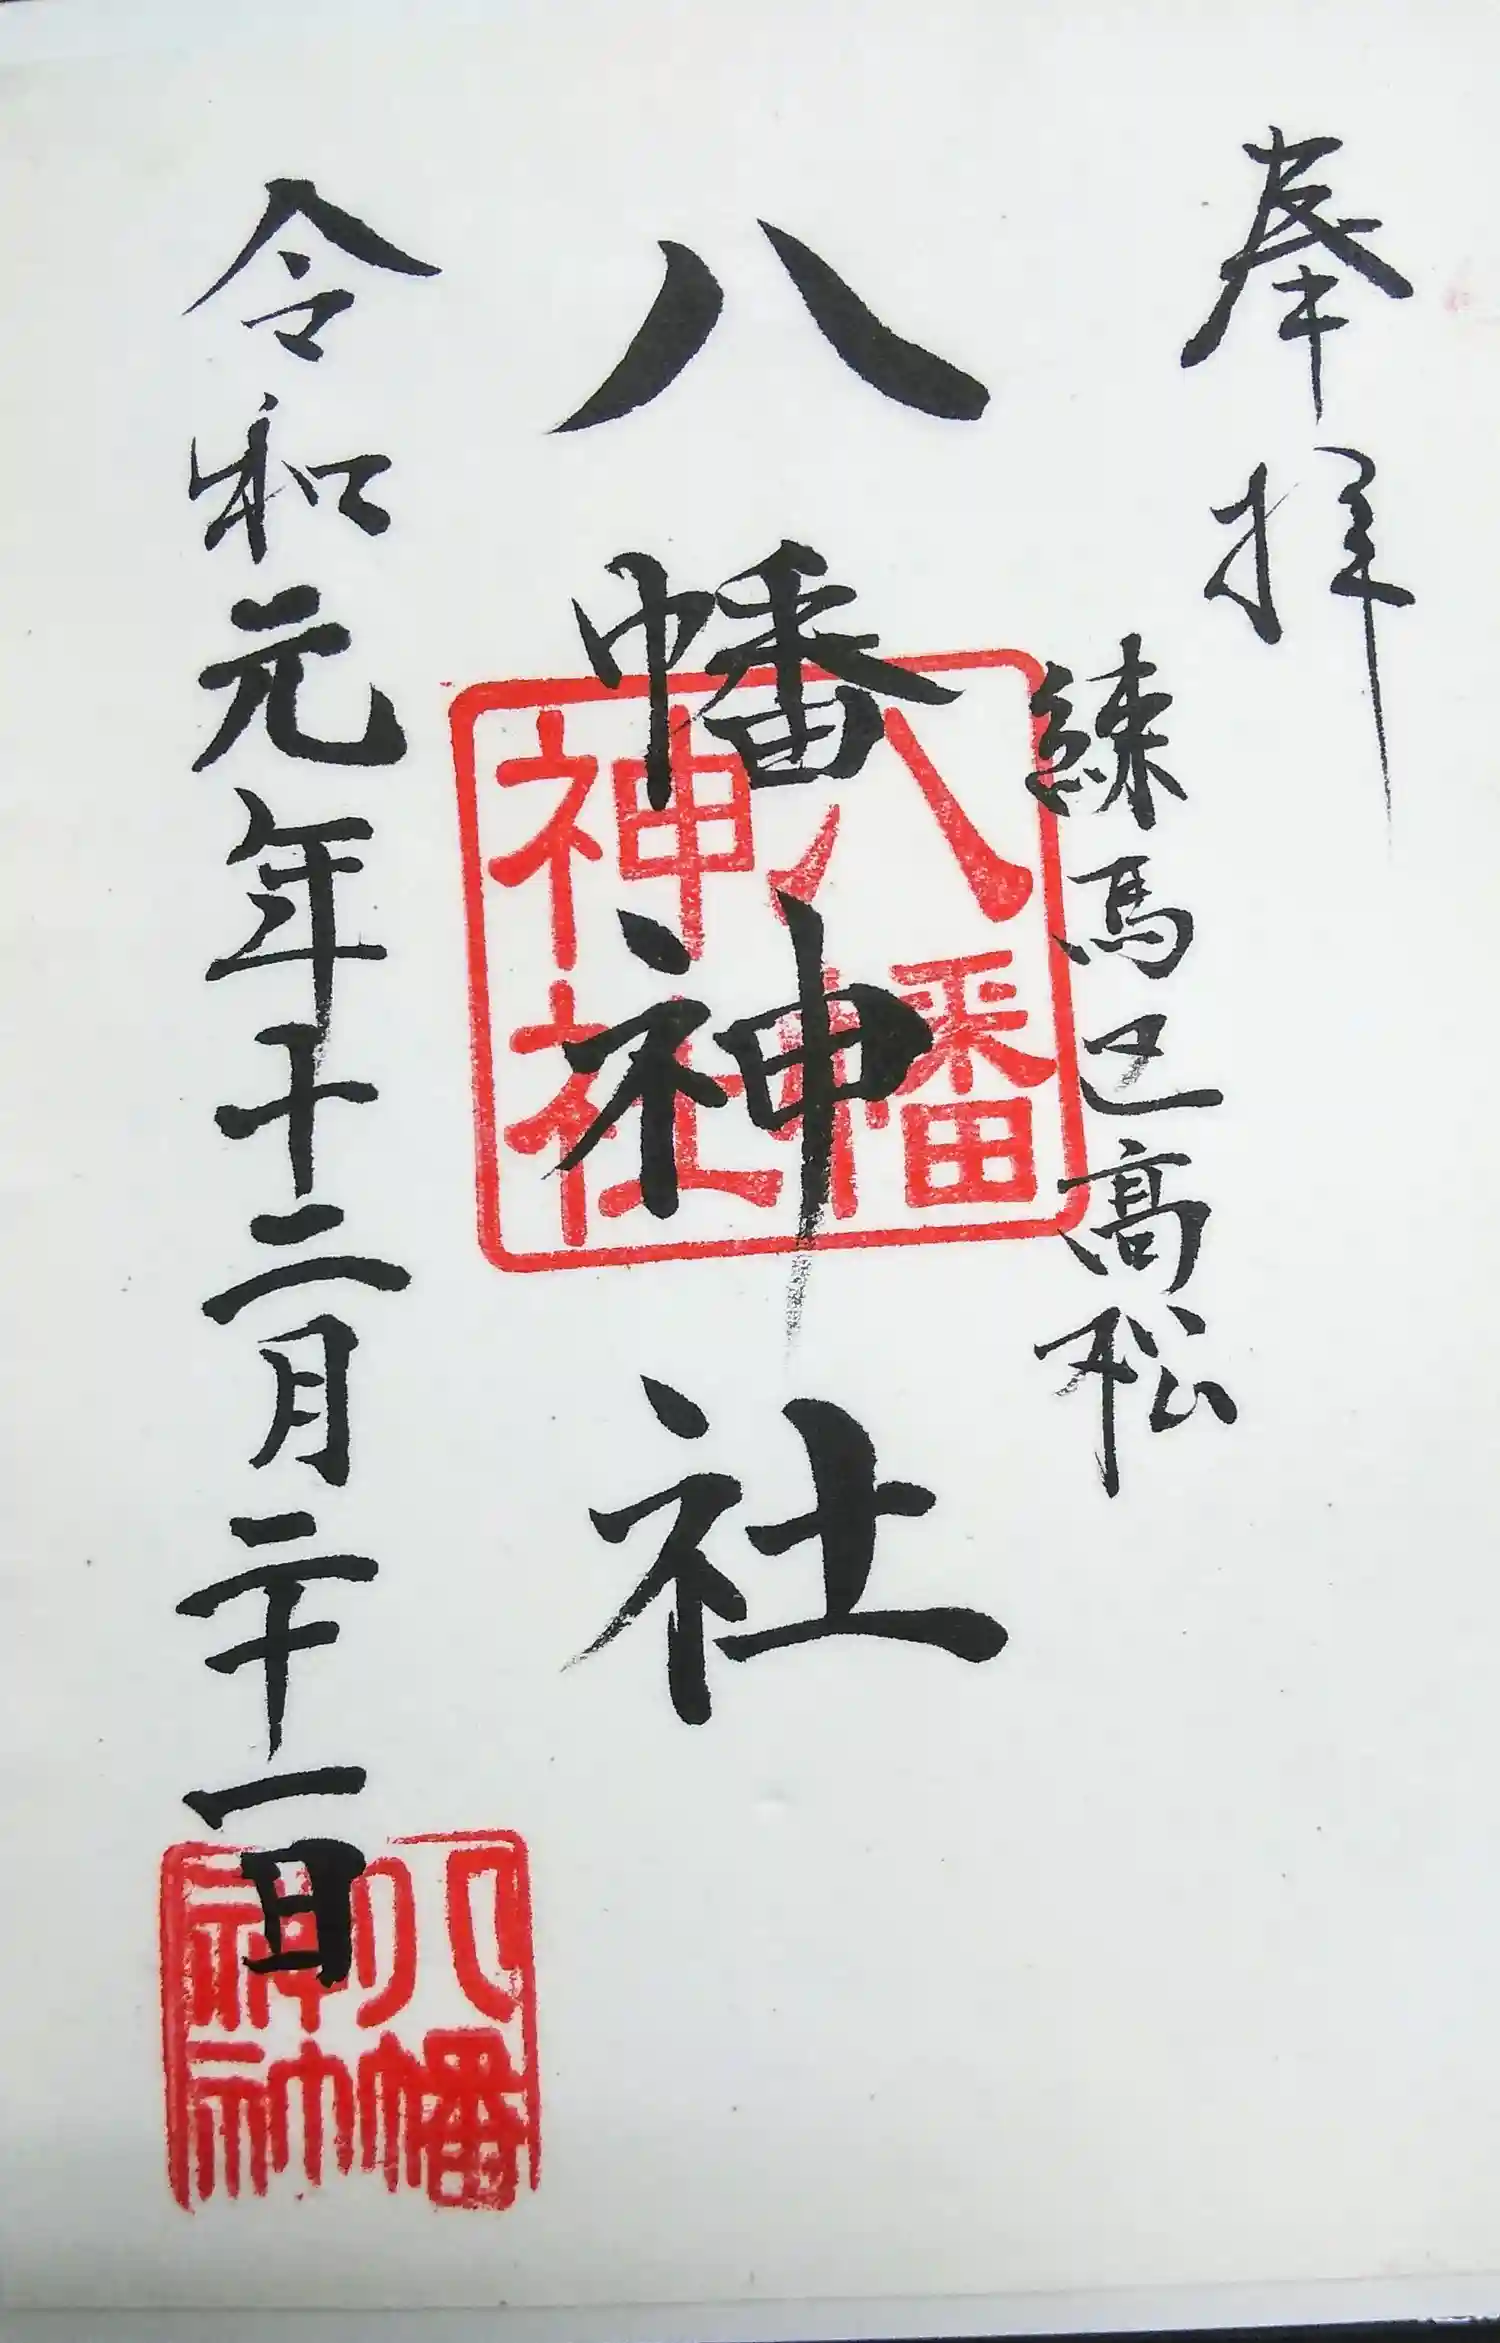 奉拝
練馬区高松
八幡神社
令和元年十二月二十一日
八幡
神社
八幡
神社